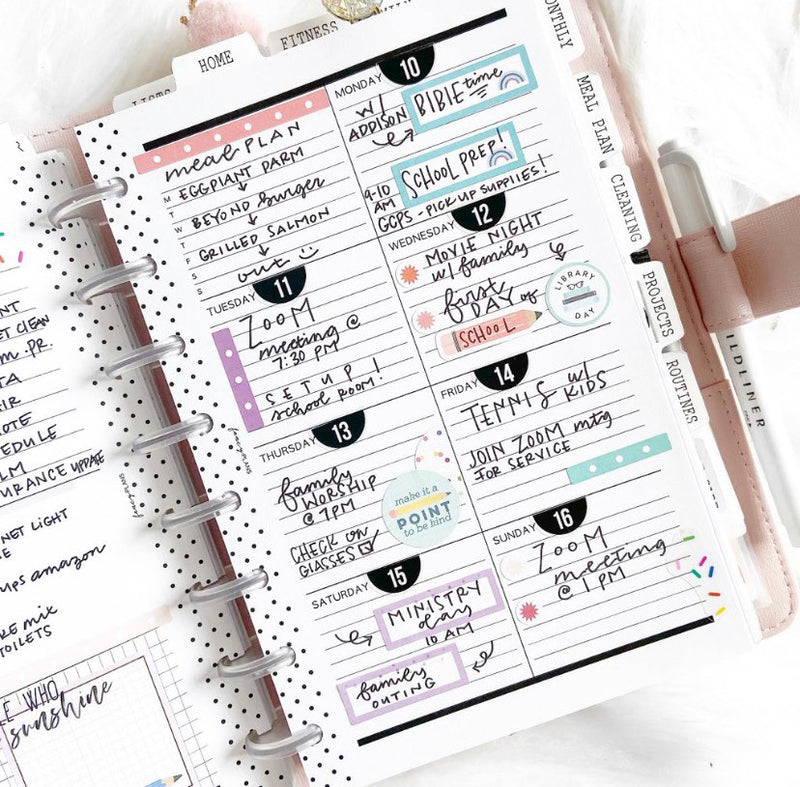 NT
ET CLEAN
M. PR.
TA
IR
OTE
HEDULE
LM
URANCE UPDATE
NET LIGHT
E
UPS amazon
KE mix
TOILETS
E WHO
sunshine
LISTS
HOME
FITNESS
meal PLAN
M EGGPLANT PARM
T ↓
W BEYOND burger
T ↓
F GRILLED SALMON
S ↓
S out
MONDAY 10
W/ ADDISON
BIBLE time
SCHOOL PREP!
9-10 AM
GCPS - PICK UP SUPPLIES!
TUESDAY 11
ZOOM
meeting @
7:30 PM
SET UP
school ROOM!
WEDNESDAY 12
MOVIE NIGHT
w/ family
first
DAY of
SCHOOL
LIBRARY
DAY
THURSDAY 13
family
WORSHIP
@ 7PM
CHECK ON
GLASSES
make it a
POINT
to be kind
FRIDAY 14
TENNIS w/
KIDS
JOIN ZOOM mtg
FOR SERVICE
SATURDAY 15
MINISTRY
day
10 AM
family
OUTING
SUNDAY 16
ZOOM
meeting
@ 1 PM
MONTHLY
MEAL PLAN
CLEANING
PROJECTS
ROUTINES
MILDLINER